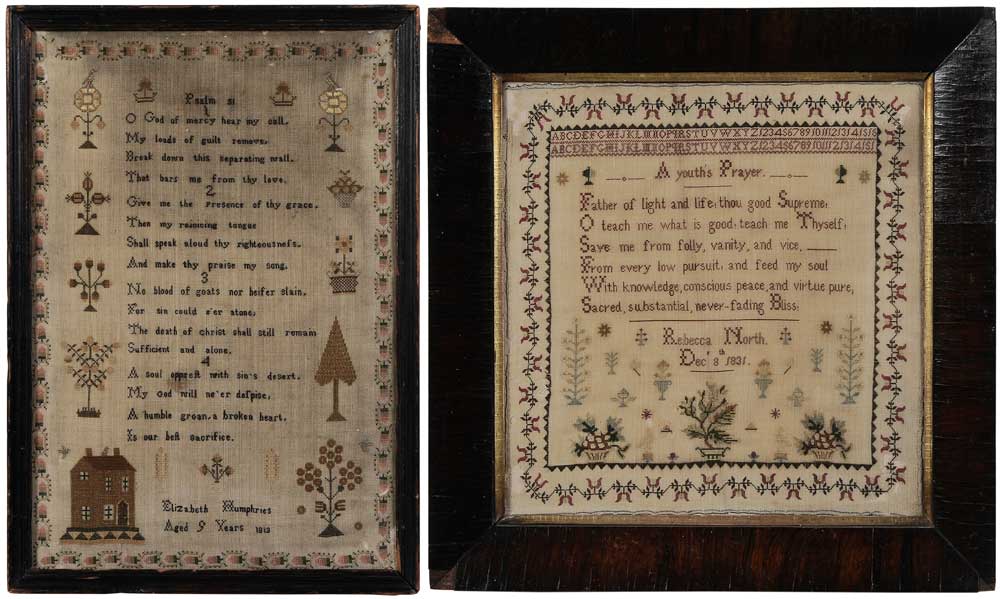 Psalm 51
1
O God of mercy hear my call,
My loads of guilt remove,
Break down this separating wall,
That bars me from thy love.
2
Give me the Presence of thy grace,
Then my rejoicing tongue
Shall speak aloud thy righteousneſs,
And make thy praise my song.
3
No blood of goats nor heifer slain,
For sin could e'er atone,
The death of christ shall still remain
Sufficient and alone.
4
A soul oppreſt with sin's desert,
My God will ne'er deſpise,
A humble groan, a broken heart,
Is our beſt sacrifice.
Elizabeth Humphries
Aged 9 Years 1813
ABCDEFGHIJKLMNOPQRSTUVWXYZ
ABCDEFGHIJKLMNOPQRSTUVWXYZ
A youth's Prayer.
Father of light and life; thou good Supreme;
O teach me what is good; teach me Thyself;
Save me from folly, vanity, and vice,
From every low pursuit; and feed my soul
With knowledge, conscious peace, and virtue pure,
Sacred, substantial, never-fading Bliss;
Rebecca North.
Decr 8th 1831.